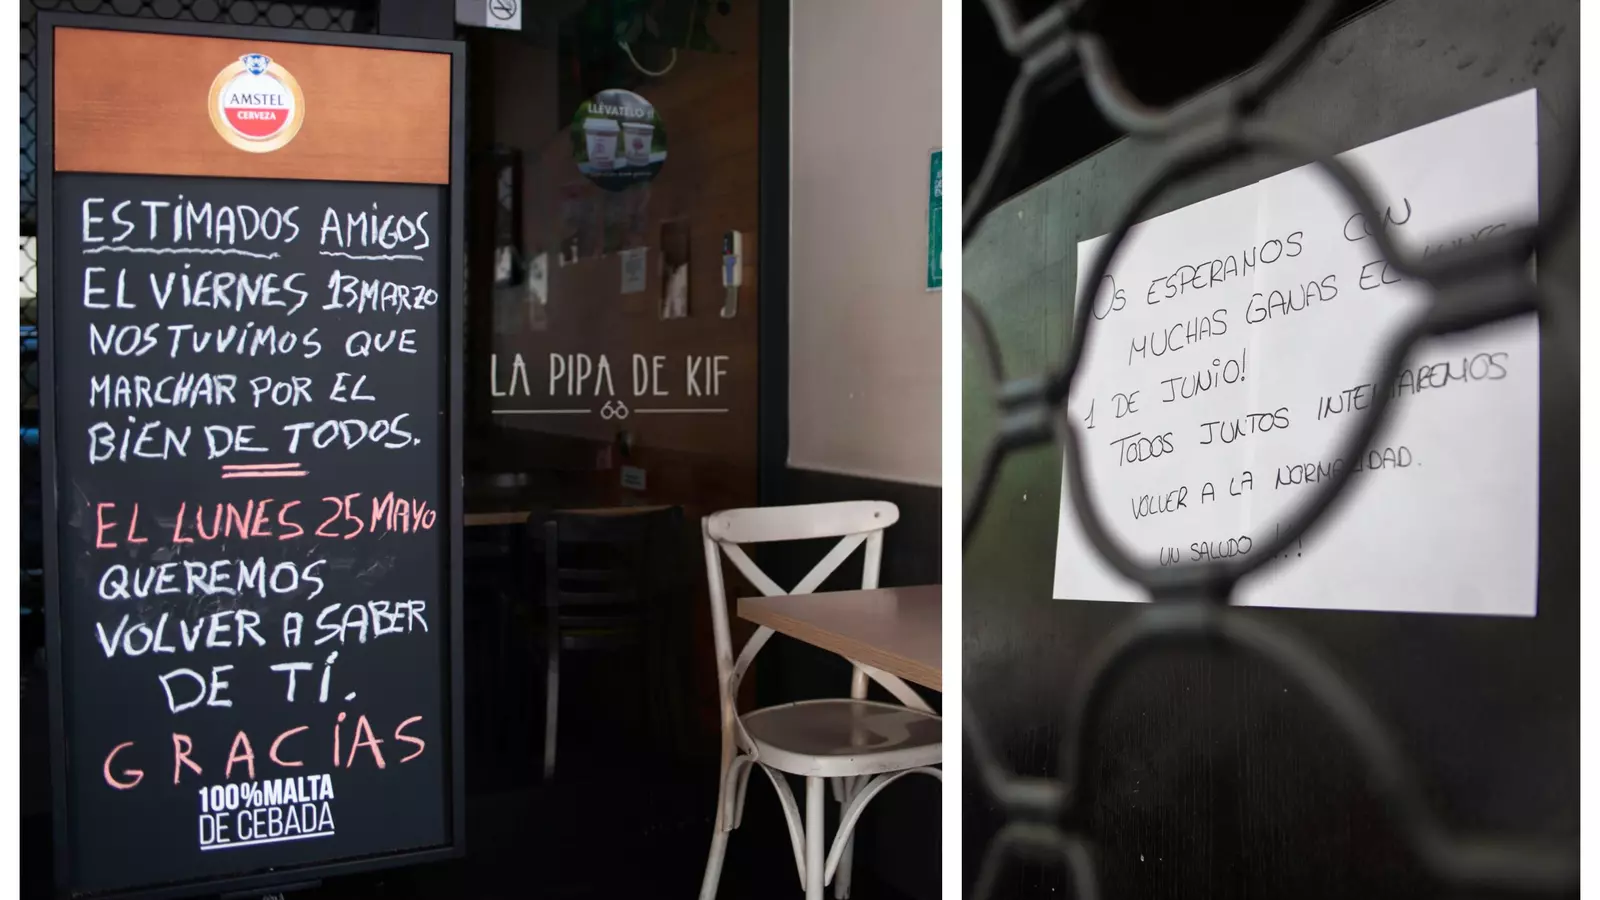 AMSTEL
CERVEZA
ESTIMADOS AMIGOS
EL VIERNES 13 MARZO
NOS TUVIMOS QUE
MARCHAR POR EL
BIEN DE TODOS.
EL LUNES 25 MAYO
QUEREMOS
VOLVER A SABER
DE TÍ.
GRACIAS
100%MALTA
DE CEBADA
LLÉVATELO !!
LA PIPA DE KIF
OS ESPERANOS CON
MUCHAS GANAS EL LUNES
1 DE JUNIO!
TODOS JUNTOS INTENTAREMOS
VOLVER A LA NORMALIDAD.
UN SALUDO !!!